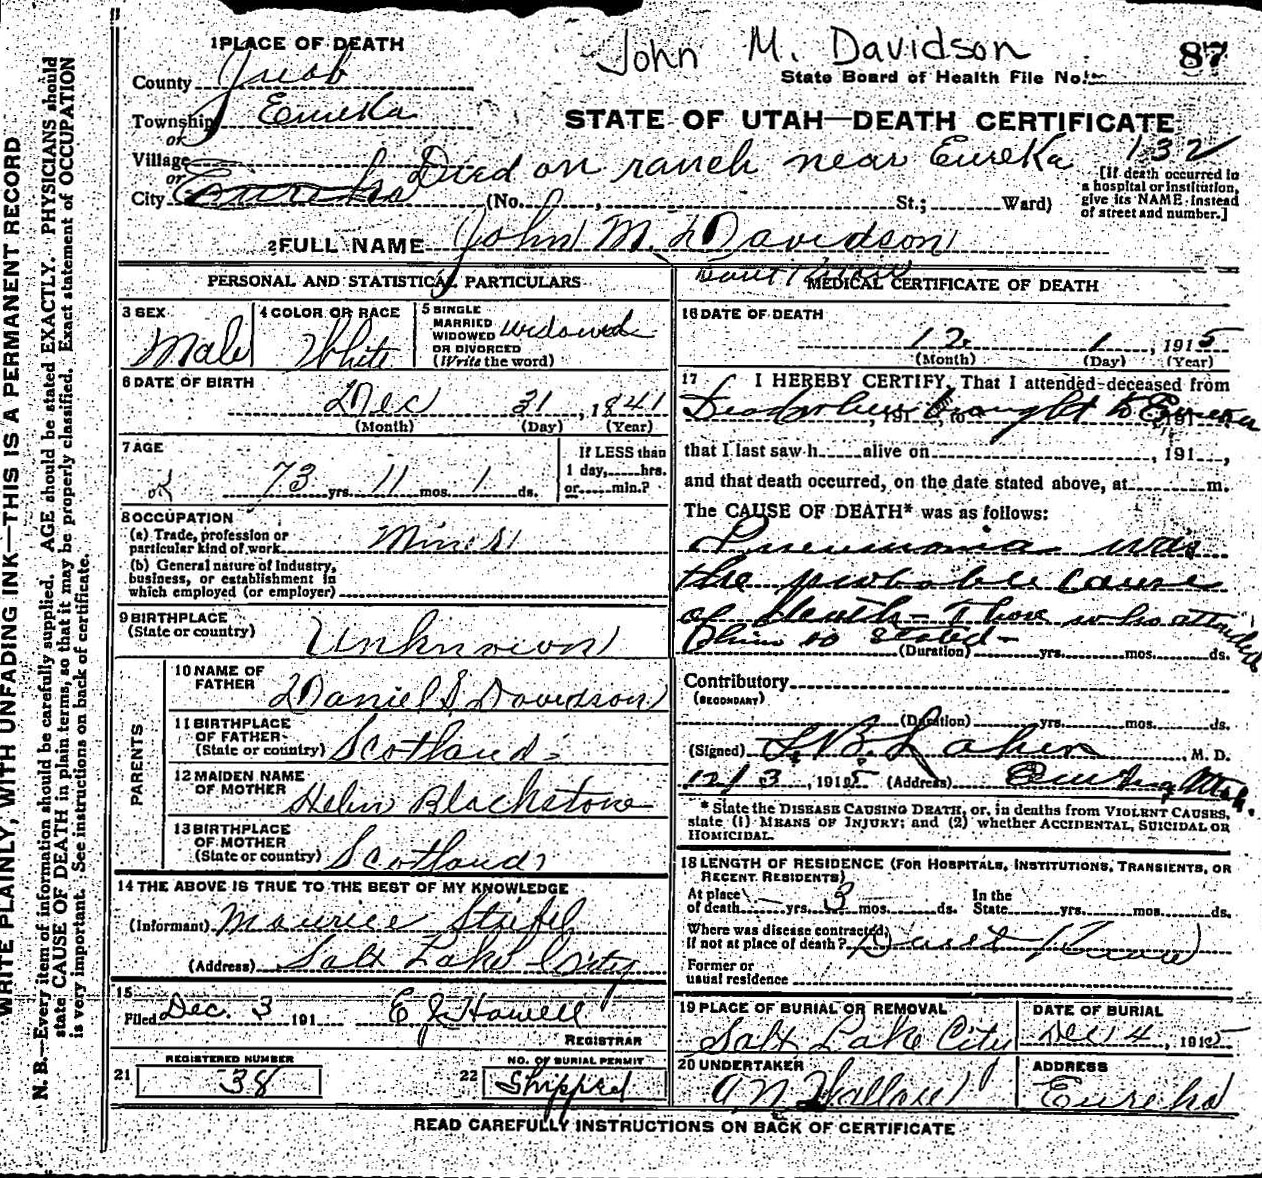 John M. Davidson
87
State Board of Health File No.
STATE OF UTAH—DEATH CERTIFICATE
132
1 PLACE OF DEATH
County Juab
Township Eureka
or
Village
or
City Eureka
Died on ranch near Eureka
(No. , St.; Ward)
[If death occurred in
a hospital or institution,
give its NAME instead
of street and number.]
2 FULL NAME John M. Davidson
PERSONAL AND STATISTICAL PARTICULARS
3 SEX
Male
4 COLOR OR RACE
White
5 SINGLE
MARRIED
WIDOWED
OR DIVORCED
(Write the word)
Widowed
6 DATE OF BIRTH
Dec 31, 1841
(Month) (Day) (Year)
7 AGE
73 yrs. 11 mos. 1 ds.
If LESS than
1 day, hrs.
or min.?
8 OCCUPATION
(a) Trade, profession or
particular kind of work Miner
(b) General nature of Industry,
business, or establishment in
which employed (or employer)
9 BIRTHPLACE
(State or country)
Unknown
PARENTS
10 NAME OF
FATHER
Daniel S Davidson
11 BIRTHPLACE
OF FATHER
(State or country) Scotland
12 MAIDEN NAME
OF MOTHER
Helen Blackstone
13 BIRTHPLACE
OF MOTHER
(State or country) Scotland
14 THE ABOVE IS TRUE TO THE BEST OF MY KNOWLEDGE
(Informant) Maurice Stiefel
(Address) Salt Lake City
15
Filed Dec. 3 191 E J Howell
REGISTRAR
REGISTERED NUMBER
21 38
NO. OF BURIAL PERMIT
22 Shipped
MEDICAL CERTIFICATE OF DEATH
16 DATE OF DEATH
12 1, 1915
(Month) (Day) (Year)
17 I HEREBY CERTIFY, That I attended deceased from
, 191 , to 191
Dead when brought to Eureka
that I last saw h alive on , 191 ,
and that death occurred, on the date stated above, at m.
The CAUSE OF DEATH* was as follows:
Pneumonia was
the probable cause
of death - Those who attended
him so stated -
(Duration) yrs. mos. ds.
Contributory
(SECONDARY)
(Duration) yrs. mos. ds.
(Signed) , M. D.
12/3, 1915 (Address) Eureka, Utah.
* State the DISEASE CAUSING DEATH, or, in deaths from VIOLENT CAUSES,
state (1) MEANS OF INJURY; and (2) whether ACCIDENTAL, SUICIDAL OR
HOMICIDAL.
18 LENGTH OF RESIDENCE (FOR HOSPITALS, INSTITUTIONS, TRANSIENTS, OR
RECENT RESIDENTS)
At place
of death yrs. 3 mos. ds.
In the
State yrs. mos. ds.
Where was disease contracted,
if not at place of death? Don't Know
Former or
usual residence
19 PLACE OF BURIAL OR REMOVAL
Salt Lake City
DATE OF BURIAL
Dec 4, 1915
20 UNDERTAKER
A N Wallace
ADDRESS
Eureka
READ CAREFULLY INSTRUCTIONS ON BACK OF CERTIFICATE
WRITE PLAINLY, WITH UNFADING INK—THIS IS A PERMANENT RECORD
N. B.—Every item of information should be carefully supplied. AGE should be stated EXACTLY. PHYSICIANS should
state CAUSE OF DEATH in plain terms, so that it may be properly classified. Exact statement of OCCUPATION
is very important. See instructions on back of certificate.